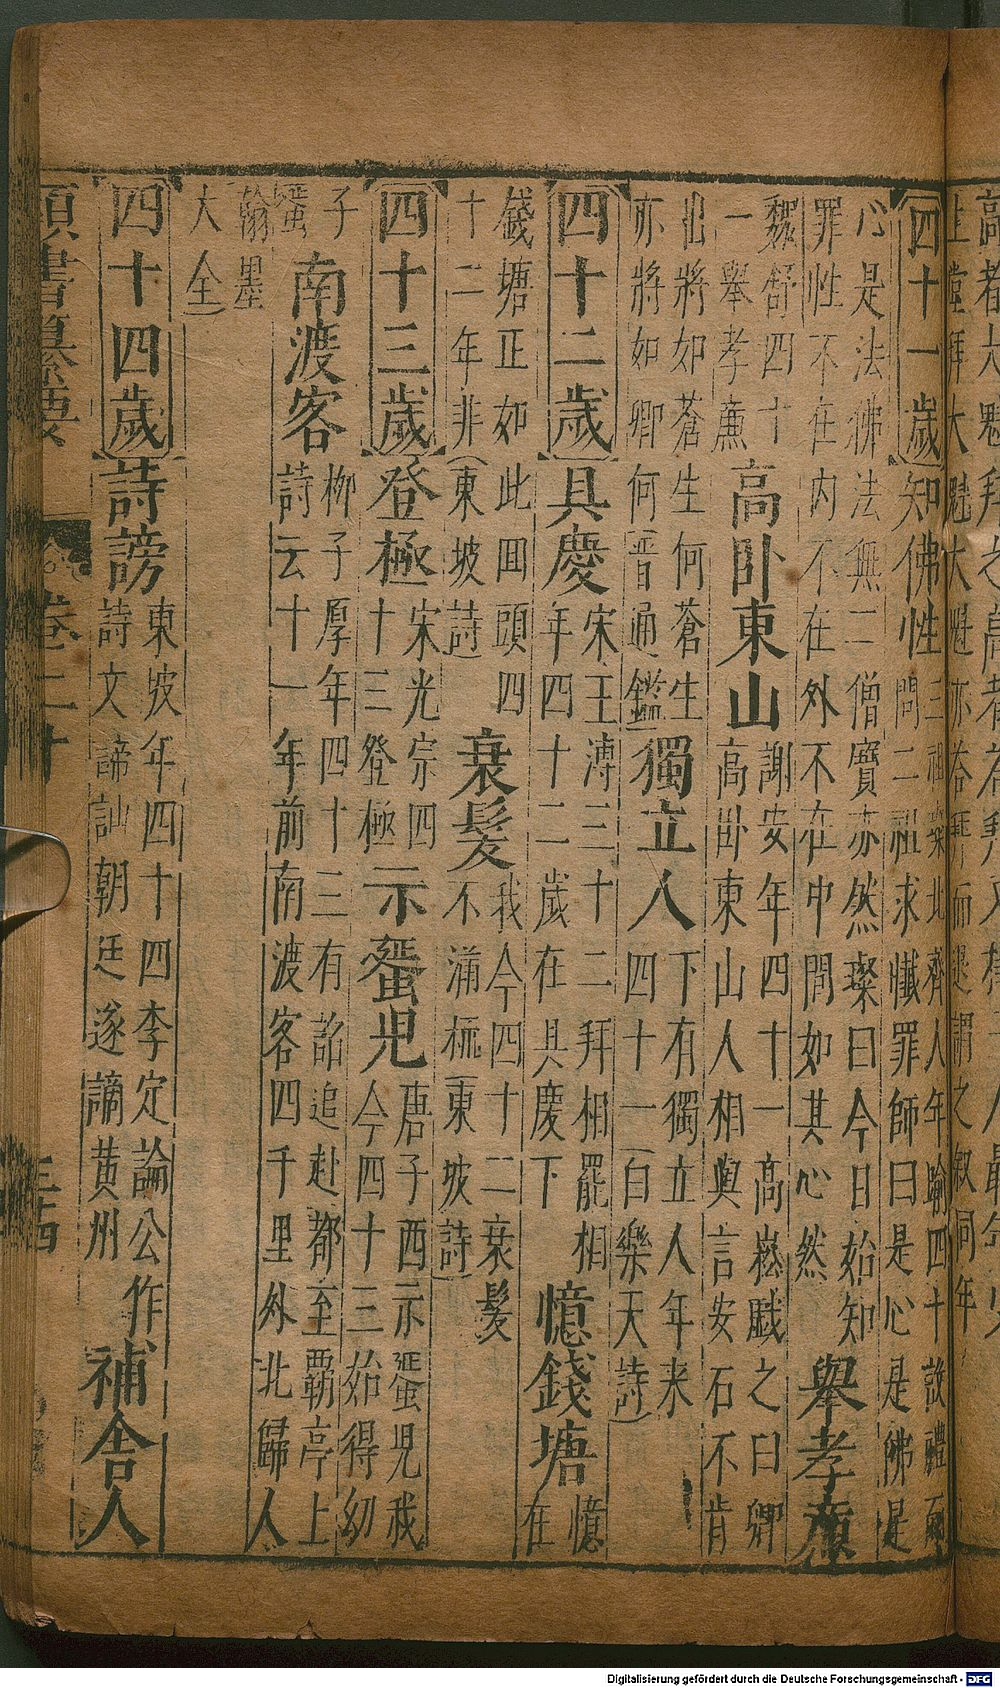 往堂拜大魁大魁亦答拜而退謂之敘同年
四十一歲
知佛性
三祖璨北齊人年踰四十設禮而
問二祖求懺罪師曰是心是佛是
心是法佛法無二僧寳亦然璨曰今日始知
罪性不在内不在外不在中間如其心然
舉孝廉
魏舒四十
一舉孝廉
高卧東山
謝安年四十一高崧戯之曰卿
高卧東山人相與言安石不肯
出將如蒼生何蒼生
亦將如卿何(晋通鑑)
獨立人
下有獨立人年来
四十一(白樂天詩)
四十二歲
具慶
宋王溥三十二拜相罷相
年四十二歲在具慶下
憶錢塘
憶
在
錢塘正如此回頭四
十二年非(東坡詩)
衰髪
我今四十二衰髪
不滿梳(東坡詩)
四十三歲
登極
宋光宗四
十三登極
示蜑児
唐子西示蜑児我
今四十三始得幼
子
蜑
南渡客
柳子厚年四十三有詔追赴都至覇亭上
詩云十一年前南渡客四千里外北歸人
翰墨
大全)
四十四歲
詩謗
東坡年四十四李定論公作
詩文諦訕朝廷遂謫黄州
補舍人
類書纂要
卷二十
三十四
Digitalisierung gefördert durch die Deutsche Forschungsgemeinschaft - DFG